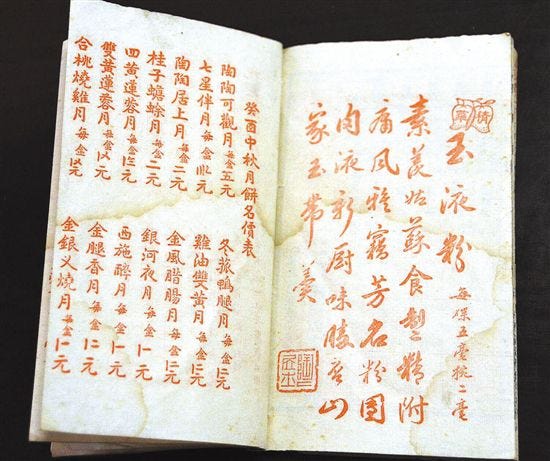 玉液粉 每碟五毫 二毫
素羨姑蘇食製精附
庸風雅竊芳名粉團
肉液新厨味勝 山
家玉帶羹
癸酉中秋月餅名價表
陶陶可觀月每盒五元
七星伴月每盒 元
陶陶居上月每盒二元
桂子蟾蜍月每盒二元
四黃蓮蓉月每盒 元
雙黃蓮蓉月每盒 元
合桃燒雞月每盒 元
冬菰鴨腿月每盒 元
雞油雙黃月每盒 元
金風腊腸月每盒 元
銀河夜月每盒一元
西施醉月每盒一元
金腿香月每盒 元
金銀叉燒月每盒 元